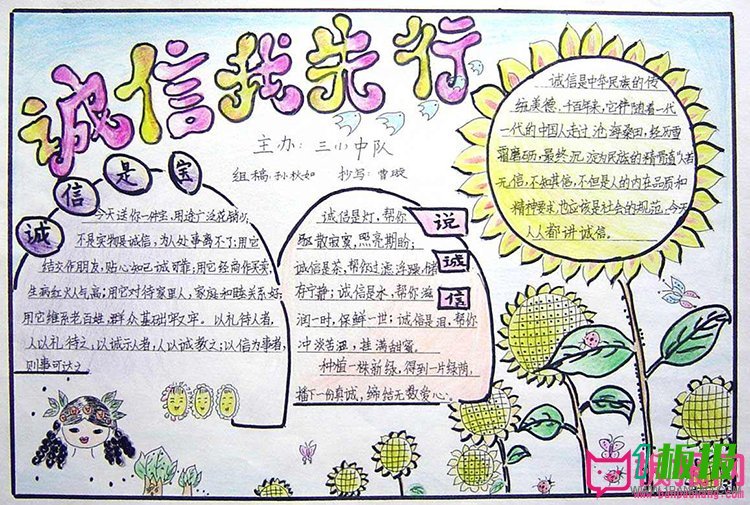 诚信我先行
主办：三小中队
组稿：孙秋如 抄写：曹璇
诚信是宝
今天送你一件宝，用途广泛花销少，
不是实物是诚信，为人处事离不了；用它
结交作朋友，贴心知己诚可靠；用它经商作买卖，
生病红火人气高；用它对待家里人，家庭和睦关系好；
用它维系老百姓，群众基础牢又牢。以礼待人者，
人以礼待之，以诚示人者，人以诚教之；以信为事者，
则事可达之
说诚信
诚信是灯，帮你
驱散寂寞，照亮期盼；
诚信是茶，帮你过滤浮躁，储
存宁静；诚信是水，帮你滋
润一时，保鲜一世；诚信是泪，帮你
冲淡苦涩，挂满甜蜜。
种植一株新绿，得到一片绿荫，
播下一份真诚，缔结无数爱心。
诚信是中华民族的传
统美德、千百年来，它伴随着一代
一代的中国人走过沧海桑田，经历雪
霜磨砺，最终沉淀为民族的精骨道"人若
无信，不知其信，不但是人的内在品质和
精神要求，也应该是社会的规范。今天
人人都讲诚信。
板报网
www.banbaowang.com